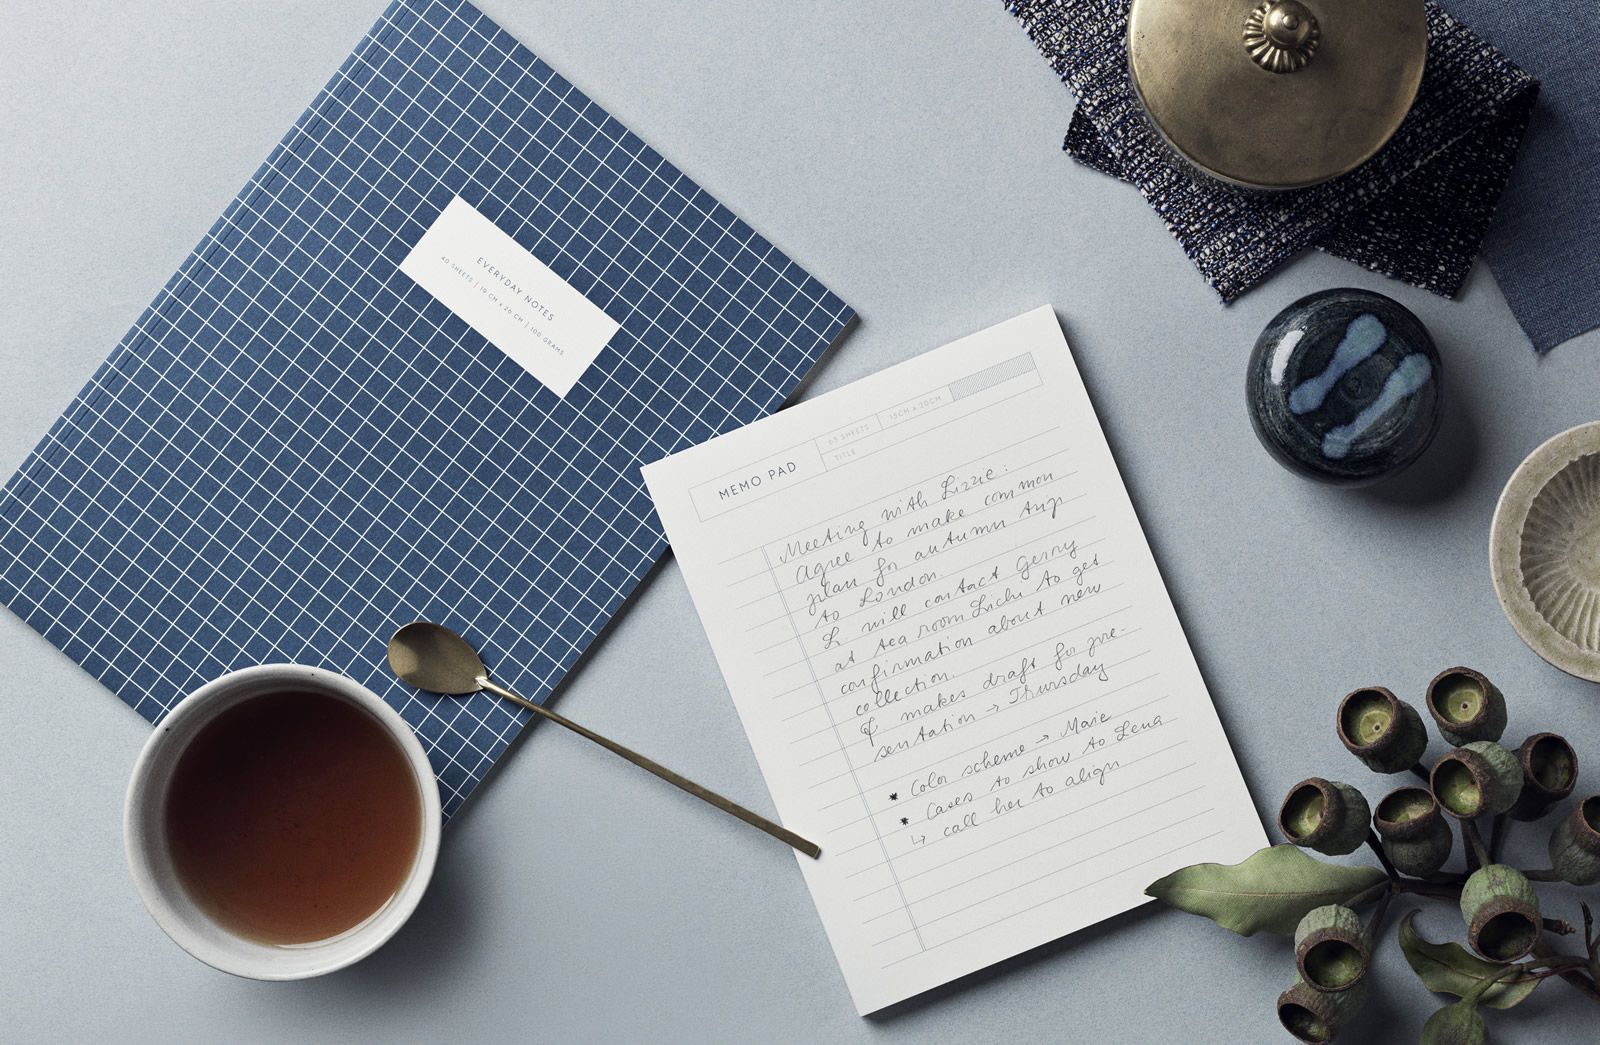 EVERYDAY NOTES
40 SHEETS | 19 CM x 26 CM | 100 GRAMS
MEMO PAD
60 SHEETS
15CM x 20CM
TITLE
Meeting with Lizzie:
Agree to make common
plan for autumn trip
to London.
L. will contact Gerry
at tea room Lichi to get
confirmation about new
collection.
makes draft for pre-
sentation → Thursday
* Color scheme → Marie
* Cases to show to Lena
↳ call her to align